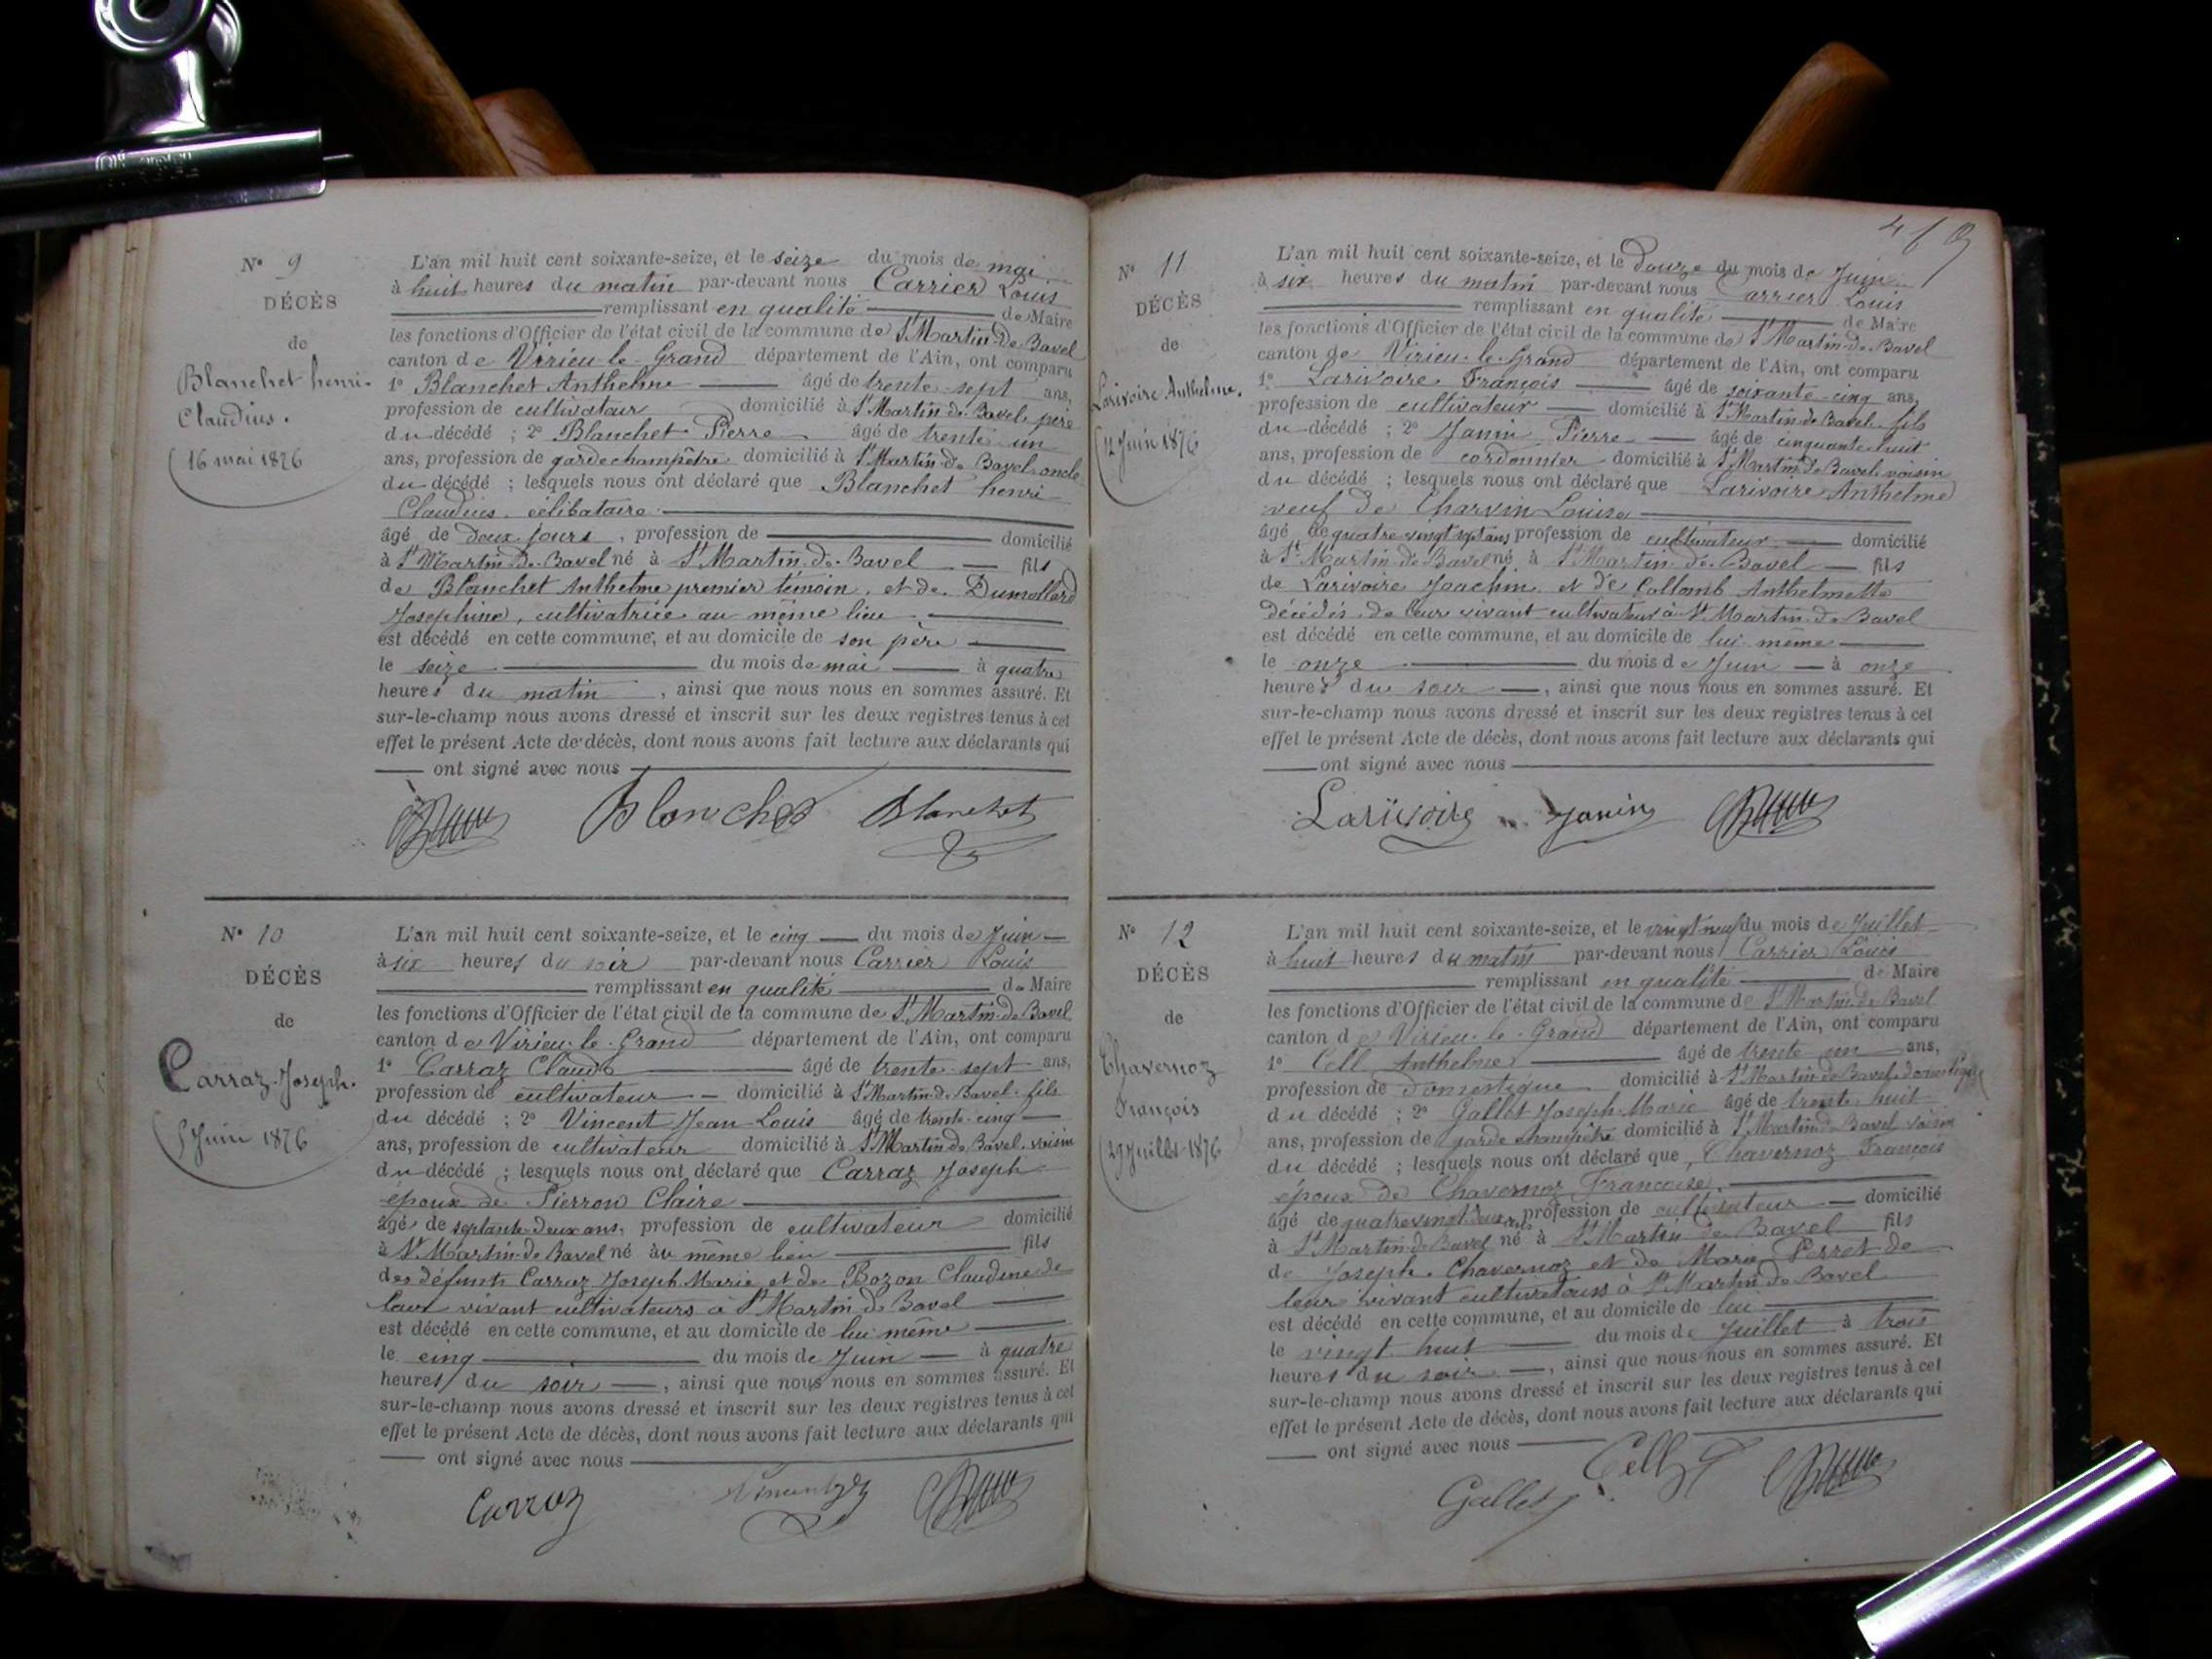 N° 9
DÉCÈS
de
Blanchet henri-
Claudius.
16 mai 1876
L'an mil huit cent soixante-seize, et le seize du mois de mai
à huit heures du matin par-devant nous Carrier Louis
remplissant en qualité de Maire
les fonctions d'Officier de l'état civil de la commune de St Martin-de-Bavel
canton de Virieu-le-Grand département de l'Ain, ont comparu
1° Blanchet Anthelme âgé de trente-sept ans,
profession de cultivateur domicilié à St Martin-de-Bavel, père
du décédé ; 2° Blanchet Pierre âgé de trente-un
ans, profession de garde champêtre domicilié à St Martin-de-Bavel, oncle
du décédé ; lesquels nous ont déclaré que Blanchet henri-
Claudius, célibataire
âgé de deux jours, profession de domicilié
à St Martin-de-Bavel né à St Martin-de-Bavel fils
de Blanchet Anthelme premier témoin, et de Dumollard
Josephine, cultivatrice au même lieu
est décédé en cette commune, et au domicile de son père
le seize du mois de mai à quatre
heures du matin, ainsi que nous nous en sommes assuré. Et
sur-le-champ nous avons dressé et inscrit sur les deux registres tenus à cet
effet le présent Acte de décès, dont nous avons fait lecture aux déclarants qui
ont signé avec nous
Blanchet Blanchet
N° 10
DÉCÈS
de
Carraz Joseph.
5 Juin 1876
L'an mil huit cent soixante-seize, et le cinq du mois de Juin
à six heures du soir par-devant nous Carrier Louis
remplissant en qualité de Maire
les fonctions d'Officier de l'état civil de la commune de St Martin-de-Bavel
canton de Virieu-le-Grand département de l'Ain, ont comparu
1° Carraz Claude âgé de trente-sept ans,
profession de cultivateur domicilié à St Martin-de-Bavel, fils
du décédé ; 2° Vincent Jean-Louis âgé de trente-cinq
ans, profession de cultivateur domicilié à St Martin-de-Bavel, voisin
du décédé ; lesquels nous ont déclaré que Carraz Joseph
époux de Pierron Claire
âgé de septante-deux ans, profession de cultivateur domicilié
à St Martin-de-Bavel né au même lieu fils
des défunts Carraz Joseph-Marie et de Bozon Claudine de
leur vivant cultivateurs à St Martin-de-Bavel
est décédé en cette commune, et au domicile de lui-même
le cinq du mois de Juin à quatre
heures du soir, ainsi que nous nous en sommes assuré. Et
sur-le-champ nous avons dressé et inscrit sur les deux registres tenus à cet
effet le présent Acte de décès, dont nous avons fait lecture aux déclarants qui
ont signé avec nous
Carraz Vincent
N° 11
DÉCÈS
de
Larivoire Anthelme.
12 Juin 1876
L'an mil huit cent soixante-seize, et le douze du mois de Juin
à six heures du matin par-devant nous Carrier Louis
remplissant en qualité de Maire
les fonctions d'Officier de l'état civil de la commune de St Martin-de-Bavel
canton de Virieu-le-Grand département de l'Ain, ont comparu
1° Larivoire François âgé de soixante-cinq ans,
profession de cultivateur domicilié à St Martin-de-Bavel, fils
du décédé ; 2° Janin Pierre âgé de cinquante-huit
ans, profession de cordonnier domicilié à St Martin-de-Bavel, voisin
du décédé ; lesquels nous ont déclaré que Larivoire Anthelme
veuf de Charvin Louise
âgé de quatre-vingt-sept ans, profession de cultivateur domicilié
à St Martin-de-Bavel né à St Martin-de-Bavel fils
de Larivoire Joachin et de Collomb Anthelmette
décédés, de leur vivant cultivateurs à St Martin-de-Bavel
est décédé en cette commune, et au domicile de lui-même
le onze du mois de Juin à onze
heures du soir, ainsi que nous nous en sommes assuré. Et
sur-le-champ nous avons dressé et inscrit sur les deux registres tenus à cet
effet le présent Acte de décès, dont nous avons fait lecture aux déclarants qui
ont signé avec nous
Larivoire Janin
N° 12
DÉCÈS
de
Chavernoz
François
29 Juillet 1876
L'an mil huit cent soixante-seize, et le vingt-neuf du mois de Juillet
à huit heures du matin par-devant nous Carrier Louis
remplissant en qualité de Maire
les fonctions d'Officier de l'état civil de la commune de St Martin-de-Bavel
canton de Virieu-le-Grand département de l'Ain, ont comparu
1° Cell Anthelme âgé de trente-un ans,
profession de domestique domicilié à St Martin-de-Bavel, domestique
du décédé ; 2° Gallet Joseph-Marie âgé de trente-huit
ans, profession de garde champêtre domicilié à St Martin-de-Bavel, voisin
du décédé ; lesquels nous ont déclaré que Chavernoz François
époux de Chavernoz Françoise
âgé de quatre-vingt-deux ans, profession de cultivateur domicilié
à St Martin-de-Bavel né à St Martin-de-Bavel fils
de Joseph Chavernoz et de Marie Perret de
leur vivant cultivateurs à St Martin-de-Bavel
est décédé en cette commune, et au domicile de lui
le vingt-huit du mois de Juillet à trois
heures du soir, ainsi que nous nous en sommes assuré. Et
sur-le-champ nous avons dressé et inscrit sur les deux registres tenus à cet
effet le présent Acte de décès, dont nous avons fait lecture aux déclarants qui
ont signé avec nous
Gallet Cell